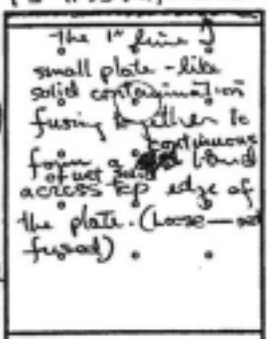 The 1st time
small plate-like
solid contamination
fusing together to
continuous
form a band
of wet solid
across top edge of
the plate. (Loose — not
fused)